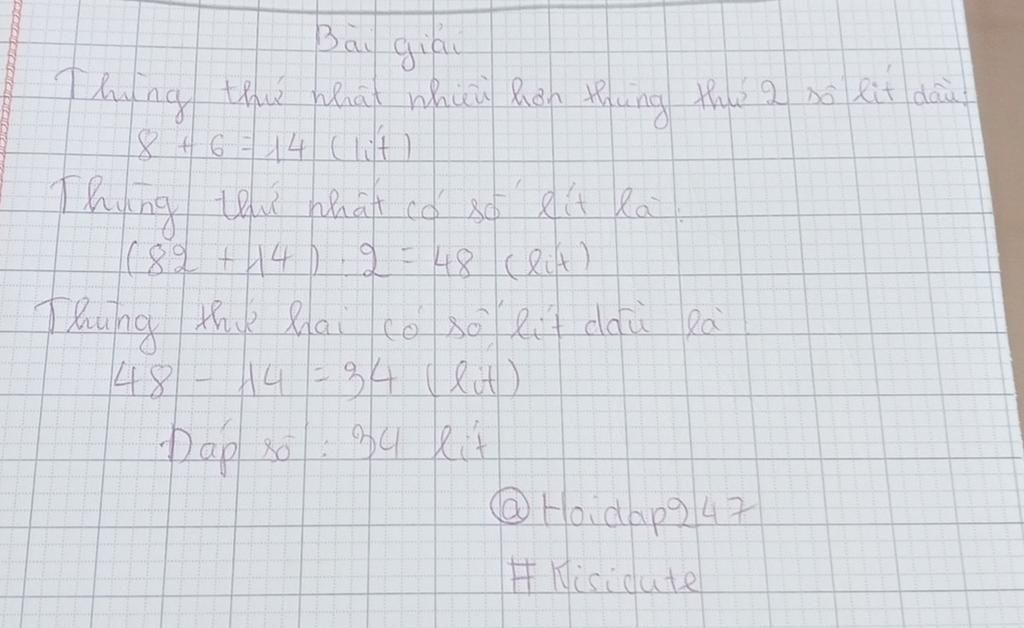 Bài giải
Thùng thứ nhất nhiều hơn thùng thứ 2 số lít dầu:
8 + 6 = 14 (lít)
Thùng thứ nhất có số lít là:
(82 + 14) : 2 = 48 (lít)
Thùng thứ hai có số lít dầu là
48 - 14 = 34 (lít)
Đáp số : 34 lít
@Hoidap247
#Kisicute